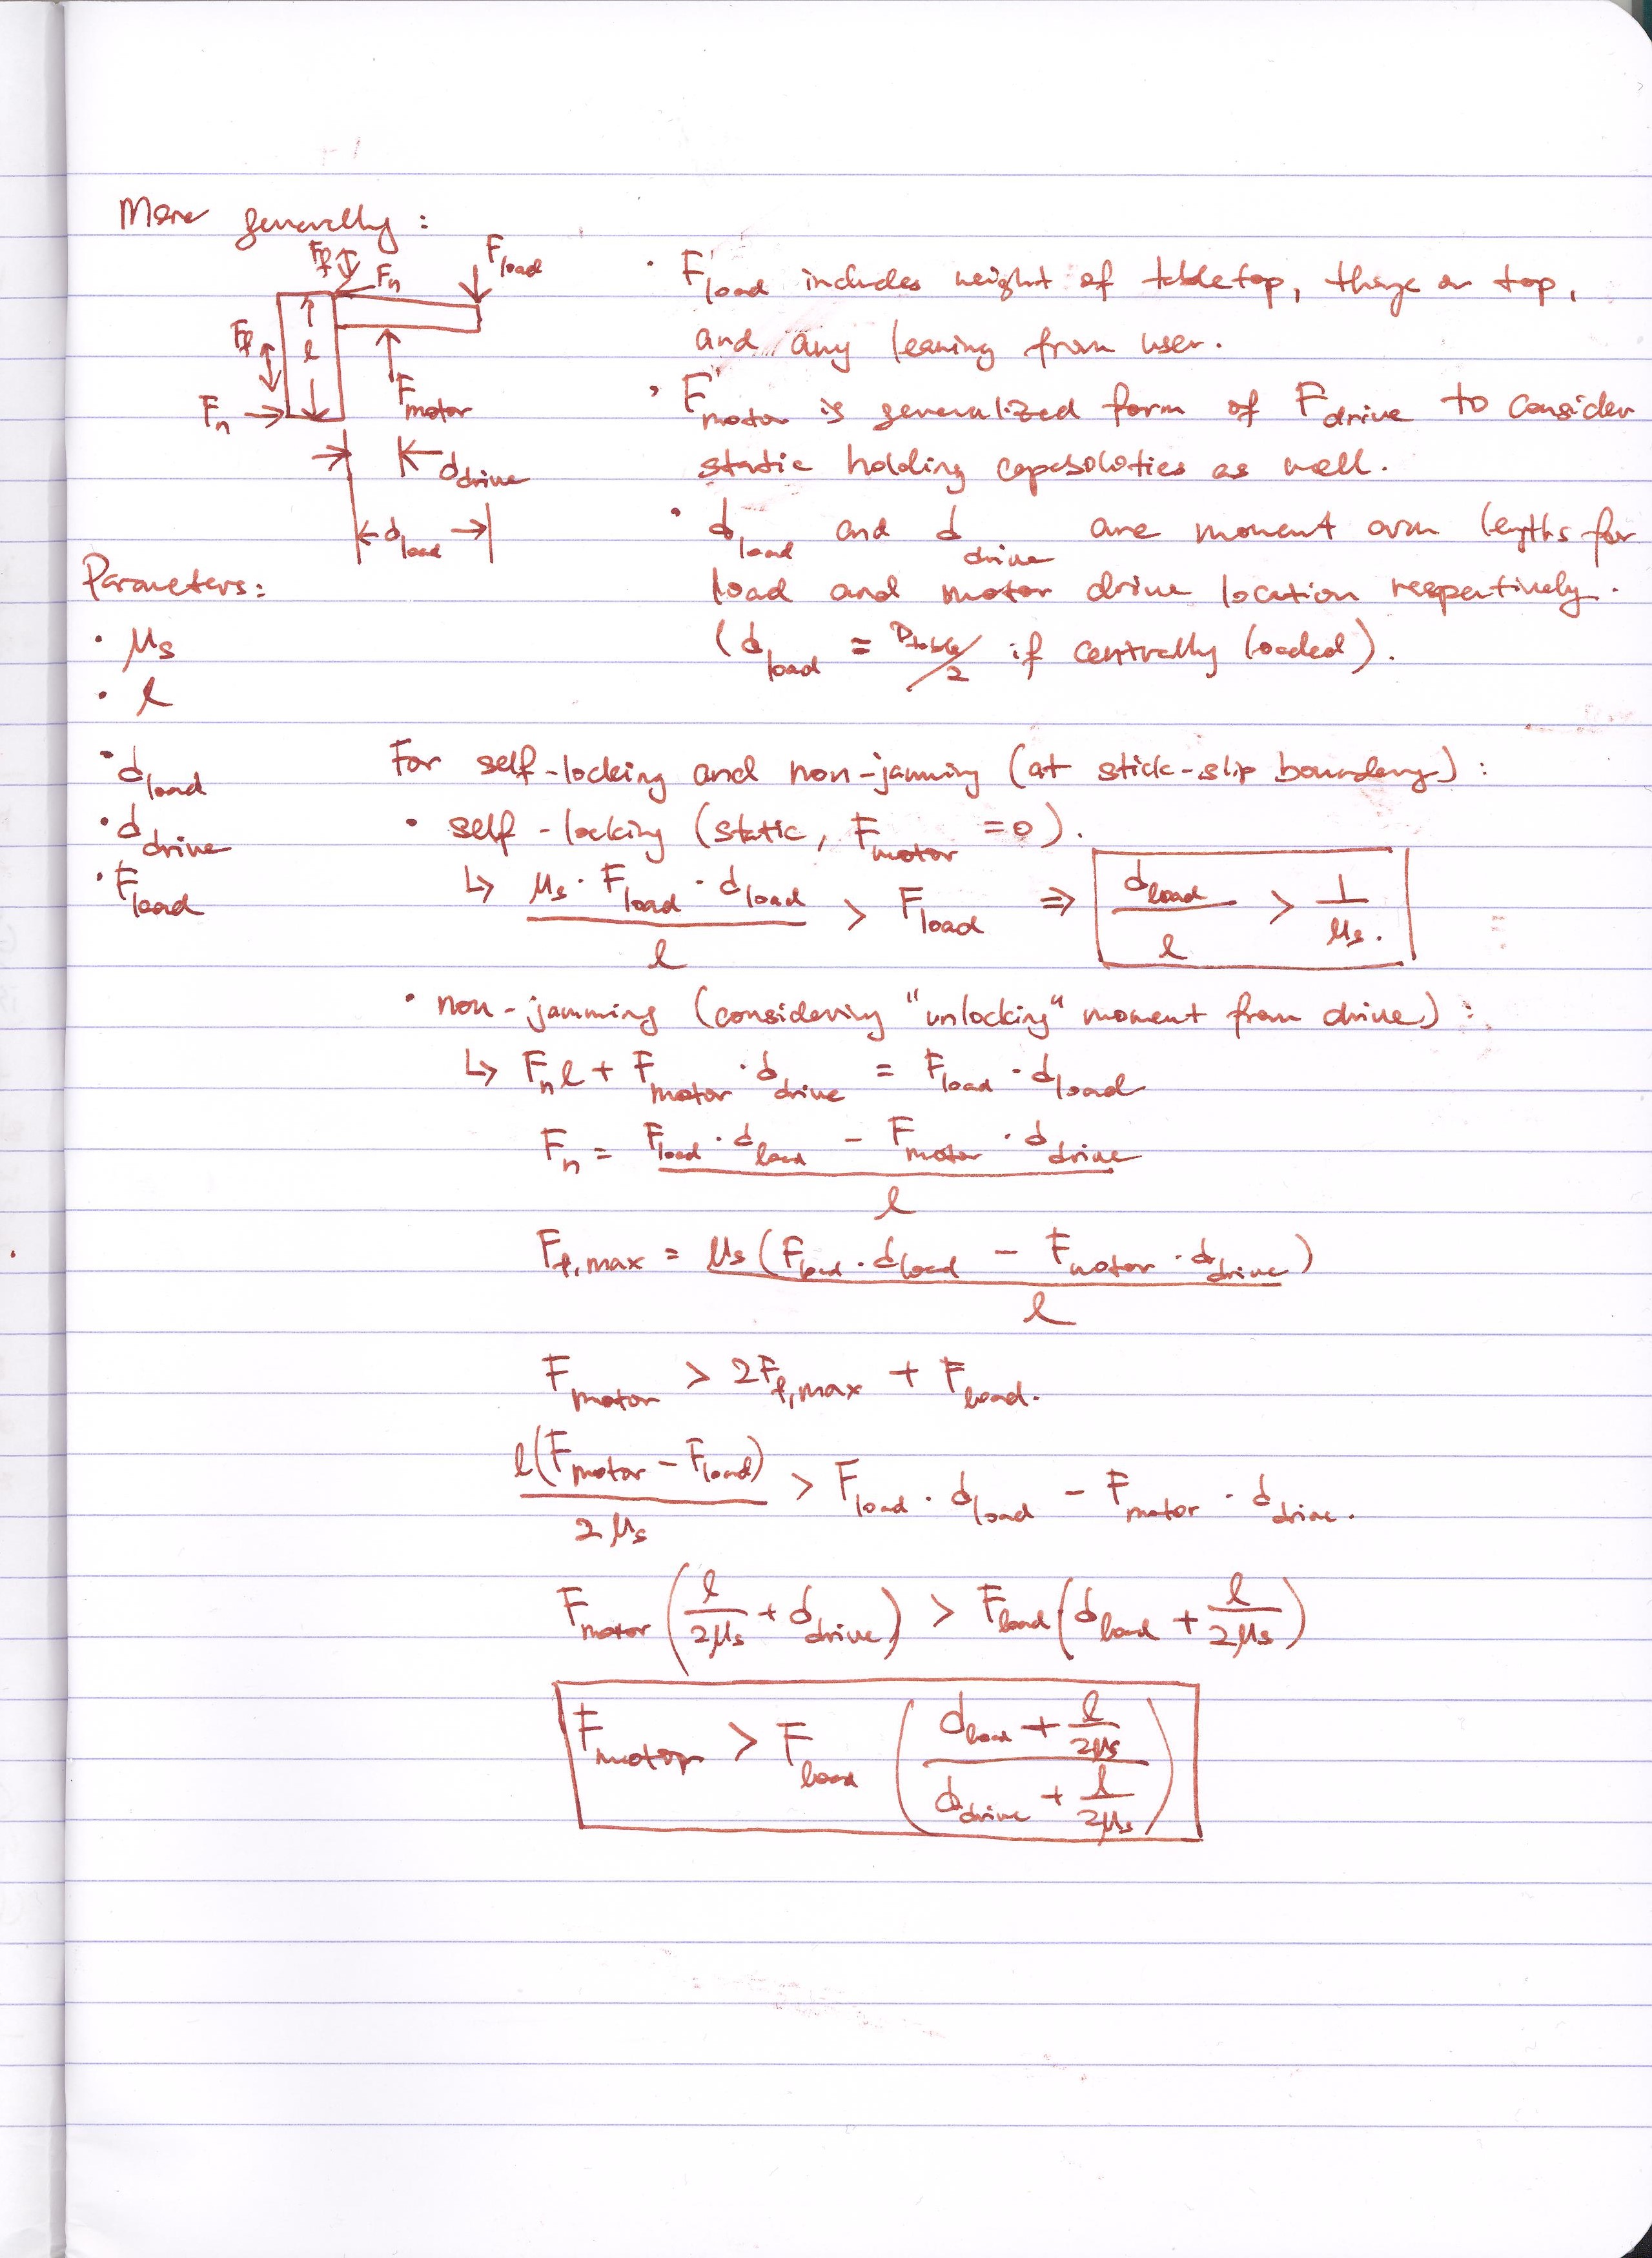 More generally :
F_f
F_n
F_load
F_f
l
F_n
F_motor
d_drive
d_load
· F_load includes weight of tabletop, things on top,
and any leaning from user.
· F_motor is generalized form of F_drive to consider
static holding capabilities as well.
· d_load and d_drive are moment arm lengths for
load and motor drive location respectively.
(d_load = D_table/2 if centrally loaded).
Parameters:
· μ_s
· l
· d_load
· d_drive
· F_load
For self-locking and non-jamming (at stick-slip boundary) :
· self-locking (static, F_motor = 0).
↳ μ_s · F_load · d_load / l > F_load ⇒ d_load / l > 1 / μ_s.
· non-jamming (considering "unlocking" moment from drive) :
↳ F_n l + F_motor · d_drive = F_load · d_load
F_n = F_load · d_load − F_motor · d_drive / l
F_f,max = μ_s (F_load · d_load − F_motor · d_drive) / l
F_motor > 2F_f,max + F_load.
l(F_motor − F_load) / 2μ_s > F_load · d_load − F_motor · d_drive.
F_motor (l / 2μ_s + d_drive) > F_load (d_load + l / 2μ_s)
F_motor > F_load (d_load + l / 2μ_s / d_drive + l / 2μ_s)